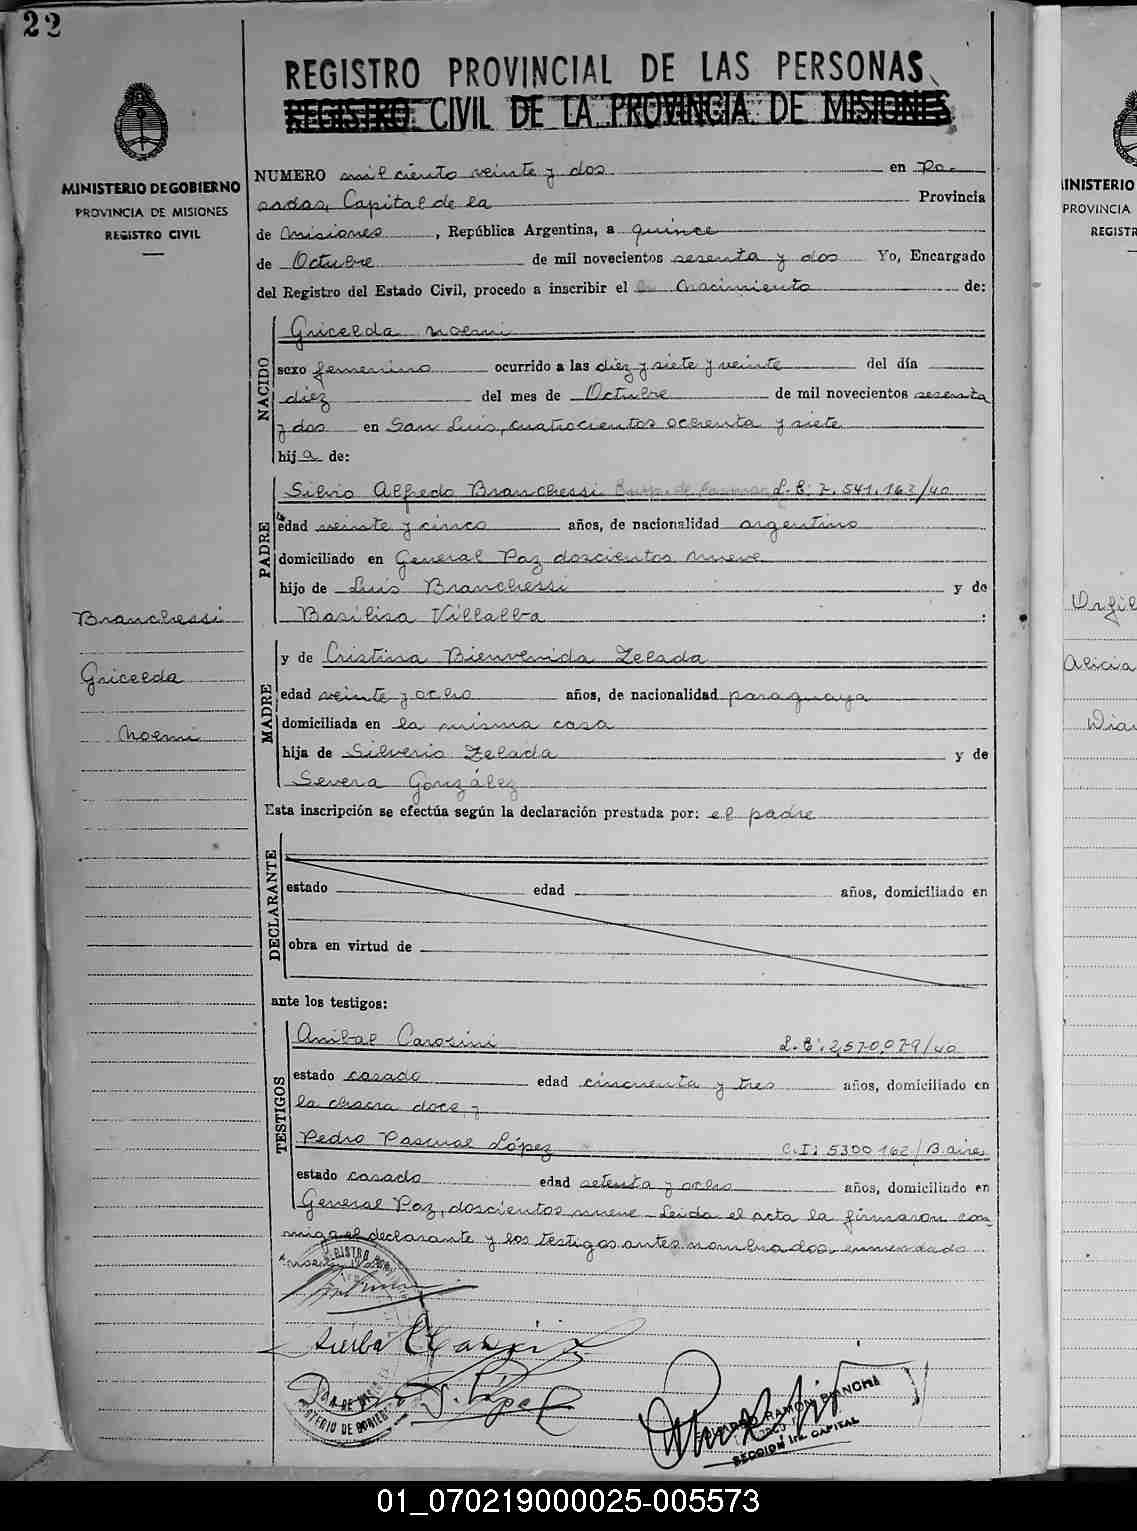 22
REGISTRO PROVINCIAL DE LAS PERSONAS
REGISTRO CIVIL DE LA PROVINCIA DE MISIONES
MINISTERIO DE GOBIERNO
PROVINCIA DE MISIONES
REGISTRO CIVIL
NUMERO mil ciento veinte y dos en Po-
sadas, Capital de la Provincia
de Misiones, República Argentina, a quince
de Octubre de mil novecientos sesenta y dos Yo, Encargado
del Registro del Estado Civil, procedo a inscribir el nacimiento de:
NACIDO
Gricelda Noemi
sexo femenino ocurrido a las diez y siete y veinte del día
diez del mes de Octubre de mil novecientos sesenta
y dos en San Luis, cuatrocientos ochenta y siete
hij a de:
PADRE
Silvio Alfredo Branchessi L.E: 7.541.163/40
edad veinte y cinco años, de nacionalidad argentino
domiciliado en General Paz doscientos nueve
hijo de Luis Branchessi y de
Basilisa Villalba :
Branchessi
Gricelda
Noemi
MADRE
y de Cristina Bienvenida Zelada
edad veinte y ocho años, de nacionalidad paraguaya
domiciliada en la misma casa
hija de Silverio Zelada y de
Severa González
Esta inscripción se efectúa según la declaración prestada por: el padre
DECLARANTE
estado edad años, domiciliado en
obra en virtud de
ante los testigos:
TESTIGOS
Anibal Carosini L.E: 2,570,079/40
estado casado edad cincuenta y tres años, domiciliado en
la chacra doce, y
Pedro Pascual López C.I: 5300162/B.aires
estado casado edad setenta y ocho años, domiciliado en
General Paz, doscientos nueve. Leida el acta la firmaron con-
migo el declarante y los testigos antes nombrados, enmendado
P. P. López
EDUARDO RAMON BIANCHI
SECCION 1ra. CAPITAL
INISTERIO
PROVINCIA
REGISTR
Alicia
01_070219000025-005573